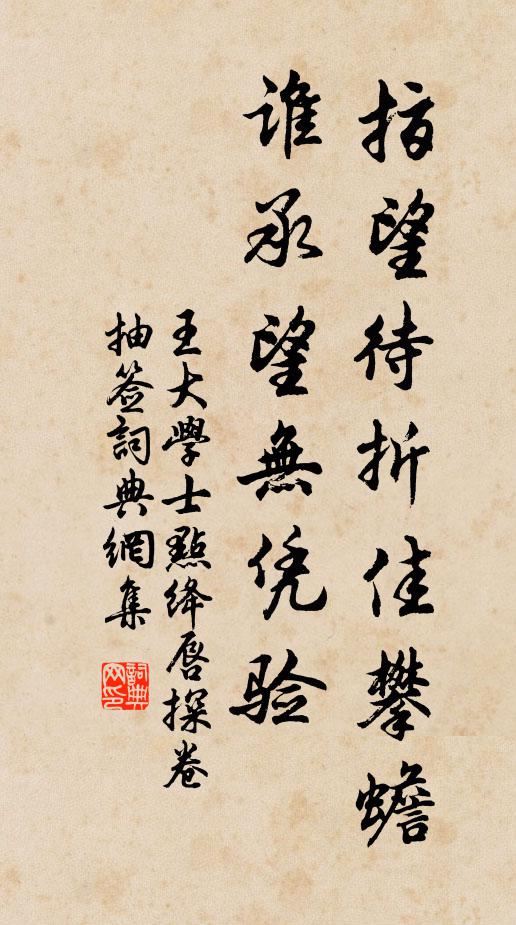 指望待折佳攀蟾
谁承望無凭验
王大學士點绛唇探卷
抽签詞典網集
詞典網印